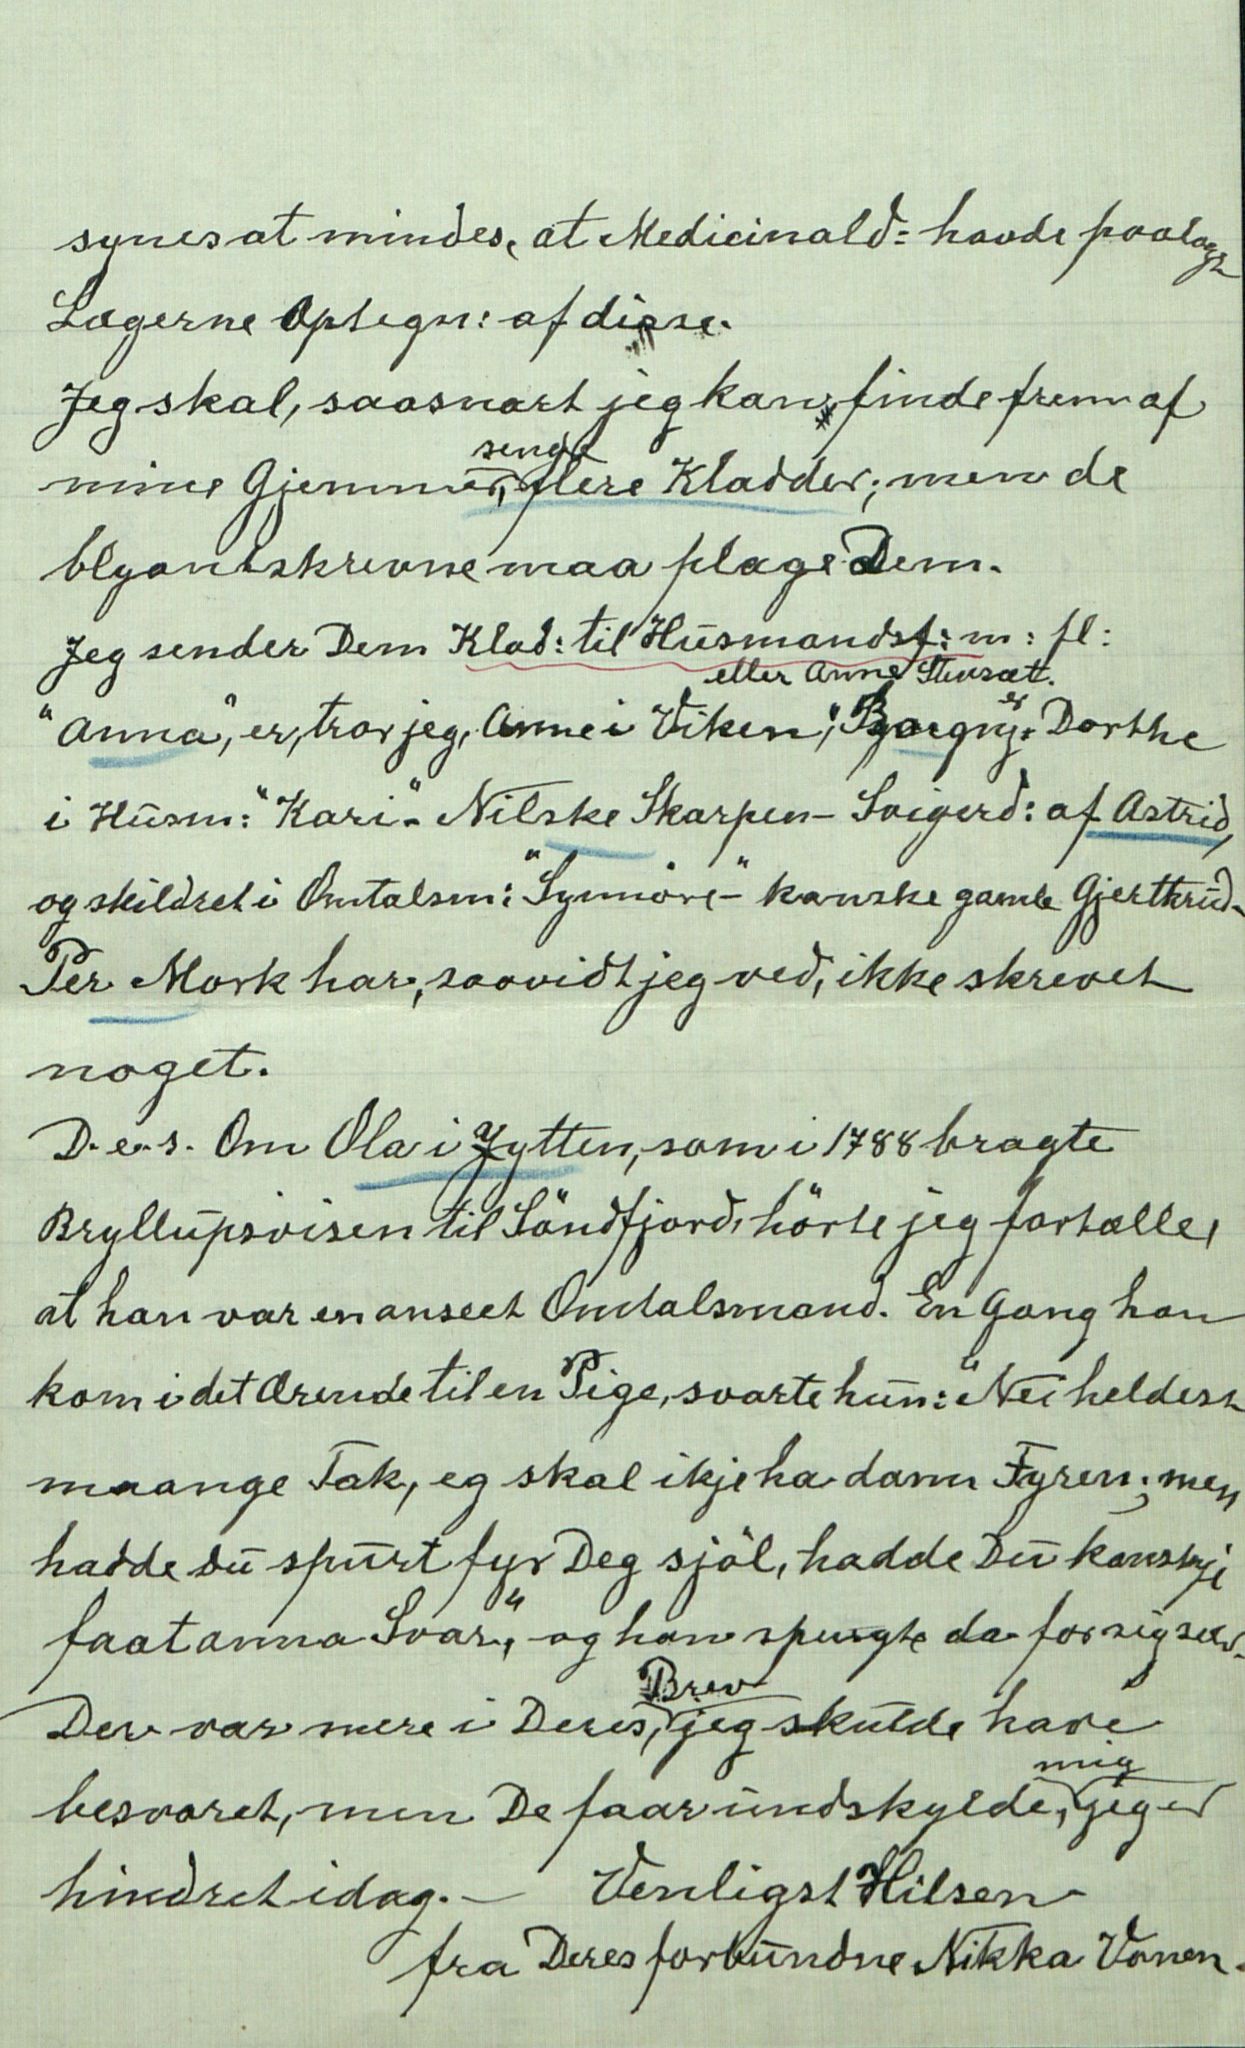 synes at mindes, at Medicinald: havde paalagt
Lægerne Optegn: af disse.
Jeg skal, saasnart jeg kan, finde frem af
senge
mine Gjemmer, flere Kladder; men de
blyantskrevne maa plage Dem.
Jeg sender Dem Klad: til Husmandsf: m: fl:
eller Anne Stensæt.
"Anna", er, tror jeg, Anne i Viken, "Borgny" er Dorthe
i Husm: "Kari" - Nilske Skarpen - Svigerd: af Astrid,
og skildret i Omtalsm: "Synnöve" - kanske gamle Gjertkrud.
Per Mork har, saavidt jeg ved, ikke skrevet
noget.
D. e. s. Om Ola i Jytten, som i 1788 bragte
Bryllupsvisen til Söndfjord, hörte jeg fortælle,
at han var en anseet Omtalsmand. En Gang han
kom i det Ærende til en Pige, svarte hun: "Nei heldest
maange Tak, eg skal ikje ha dann Fyren; men
hadde du spurt fyr Deg sjöl, hadde Du kanskje
faat anna Svar," og han spurgte da for sig selv.
Brev
Der var mere i Deres, jeg skulde have
mig
besvaret, men De faar undskylde, jeg er
hindret idag. - Venligst Hilsen
fra Deres forbundne Nikka Vonen.